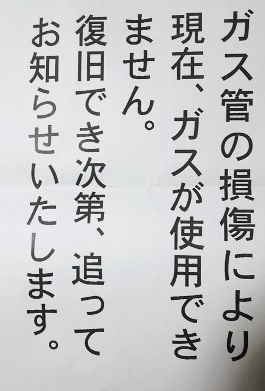 ガス管の損傷により
現在、ガスが使用でき
ません。
復旧でき次第、追って
お知らせいたします。